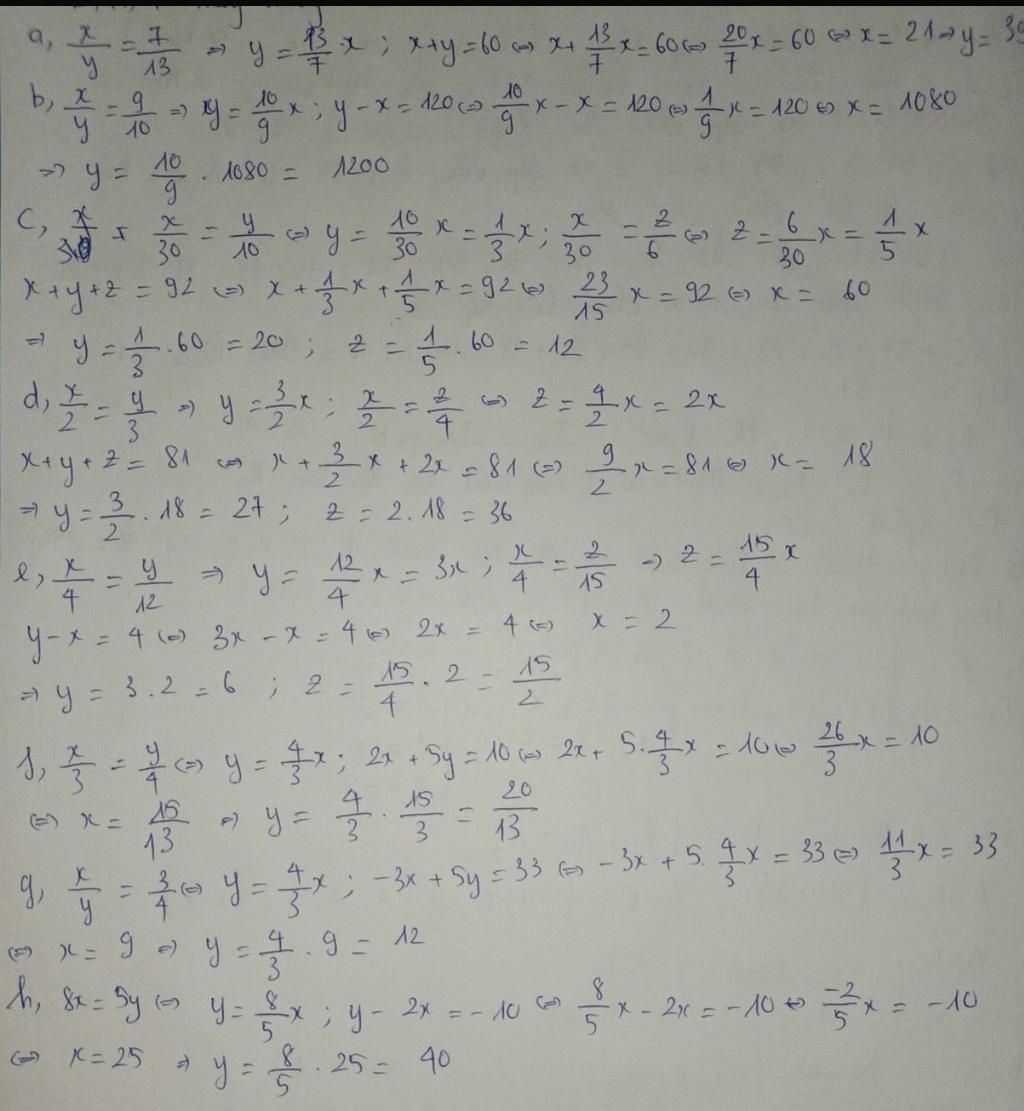 a, x/y = 7/13 => y = 13/7 . x ; x+y = 60 <=> x + 13/7 x = 60 <=> 20/7 x = 60 <=> x = 21 => y = 39
b, x/y = 9/10 => y = 10/9 x ; y - x = 120 <=> 10/9 x - x = 120 <=> 1/9 x = 120 <=> x = 1080
=> y = 10/9 . 1080 = 1200
c, x/30 = y/10 <=> y = 10/30 x = 1/3 x ; x/30 = z/6 <=> z = 6/30 x = 1/5 x
x + y + z = 92 <=> x + 1/3 x + 1/5 x = 92 <=> 23/15 x = 92 <=> x = 60
=> y = 1/3 . 60 = 20 ; z = 1/5 . 60 = 12
d, x/2 = y/3 => y = 3/2 x ; x/2 = z/4 <=> z = 4/2 x = 2x
x + y + z = 81 <=> x + 3/2 x + 2x = 81 <=> 9/2 x = 81 <=> x = 18
=> y = 3/2 . 18 = 27 ; z = 2 . 18 = 36
e, x/4 = y/12 => y = 12/4 x = 3x ; x/4 = z/15 => z = 15/4 x
y - x = 4 <=> 3x - x = 4 <=> 2x = 4 <=> x = 2
=> y = 3 . 2 = 6 ; z = 15/4 . 2 = 15/2
f, x/3 = y/4 <=> y = 4/3 x ; 2x + 5y = 10 <=> 2x + 5 . 4/3 x = 10 <=> 26/3 x = 10
<=> x = 15/13 => y = 4/3 . 15/3 = 20/13
g, x/y = 3/4 <=> y = 4/3 x ; -3x + 5y = 33 <=> -3x + 5 . 4/3 x = 33 <=> 11/3 x = 33
<=> x = 9 => y = 4/3 . 9 = 12
h, 8x = 5y <=> y = 8/5 x ; y - 2x = -10 <=> 8/5 x - 2x = -10 <=> -2/5 x = -10
<=> x = 25 => y = 8/5 . 25 = 40